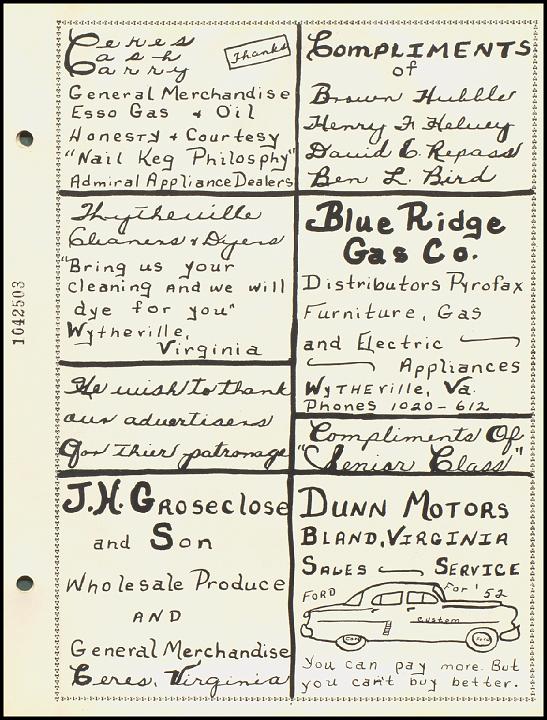 Ceres
Cash
Carry
Thanks
General Merchandise
Esso Gas & Oil
Honesty & Courtesy
"Nail Keg Philosphy"
Admiral Appliance Dealers
Compliments
of
Brown Hubble
Henry F. Kelley
David E. Repass
Ben L. Bird
Wytheville
Cleaners & Dyers
"Bring us your
cleaning and we will
dye for you"
Wytheville,
Virginia
Blue Ridge
Gas Co.
Distributors Pyrofax
Furniture, Gas
and Electric
Appliances
Wytheville, Va.
Phones 1020-612
We wish to thank
our advertisers
for thier patronage
Compliments Of
"Senior Class"
J.H. Groseclose
and Son
Wholesale Produce
AND
General Merchandise
Ceres, Virginia
Dunn Motors
Bland, Virginia
Sales Service
FORD For '52
Custom
Ford Ford
You can pay more. But
you can't buy better.
1042503